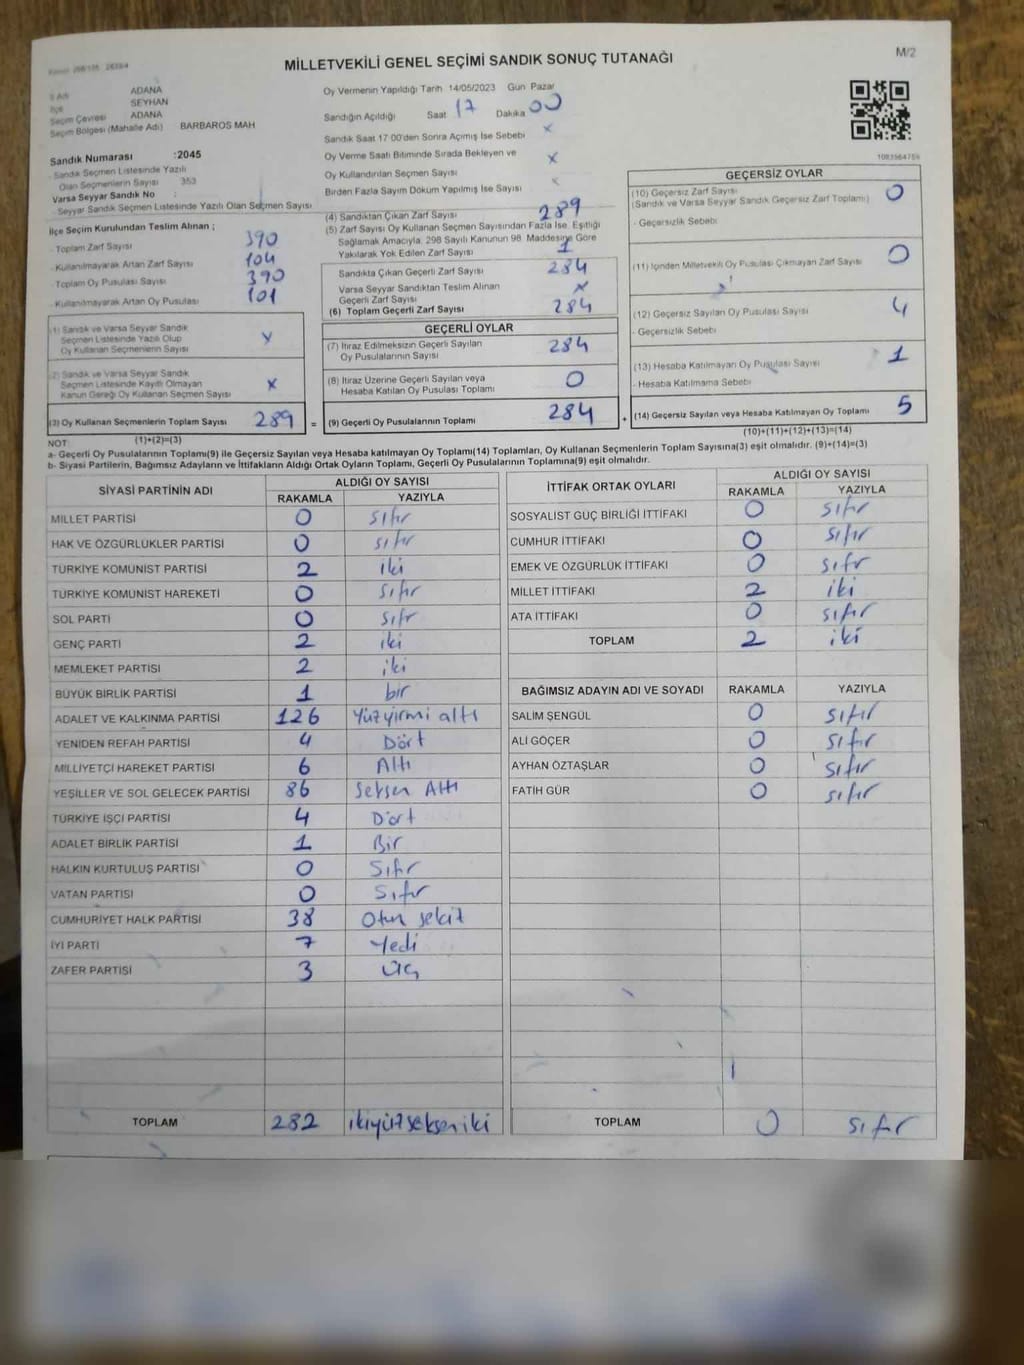 MİLLETVEKİLİ GENEL SEÇİMİ SANDIK SONUÇ TUTANAĞI
M/2
İl Adı ADANA
İlçe SEYHAN
Seçim Çevresi ADANA
Seçim Bölgesi (Mahalle Adı) BARBAROS MAH
Sandık Numarası :2045
Sandık Seçmen Listesinde Yazılı
Olan Seçmenlerin Sayısı 353
Varsa Seyyar Sandık No :
Seyyar Sandık Seçmen Listesinde Yazılı Olan Seçmen Sayısı
İlçe Seçim Kurulundan Teslim Alınan ;
- Toplam Zarf Sayısı 390
- Kullanılmayarak Artan Zarf Sayısı 104
- Toplam Oy Pusulası Sayısı 390
- Kullanılmayarak Artan Oy Pusulası 101
(1) Sandık ve Varsa Seyyar Sandık
Seçmen Listesinde Yazılı Olup
Oy Kullanan Seçmenlerin Sayısı x
(2) Sandık ve Varsa Seyyar Sandık
Seçmen Listesinde Kayıtlı Olmayan
Kanun Gereği Oy Kullanan Seçmen Sayısı x
(3) Oy Kullanan Seçmenlerin Toplam Sayısı 289 =
(1)+(2)=(3)
Oy Vermenin Yapıldığı Tarih 14/05/2023 Gün Pazar
Sandığın Açıldığı Saat 17 Dakika 00
Sandık Saat 17:00'den Sonra Açılmış İse Sebebi x
Oy Verme Saati Bitiminde Sırada Bekleyen ve
Oy Kullandırılan Seçmen Sayısı x
Birden Fazla Sayım Döküm Yapılmış İse Sayısı x
(4) Sandıktan Çıkan Zarf Sayısı 289
(5) Zarf Sayısı Oy Kullanan Seçmen Sayısından Fazla İse, Eşitliği
Sağlamak Amacıyla, 298 Sayılı Kanunun 98. Maddesine Göre
Yakılarak Yok Edilen Zarf Sayısı 1
Sandıkta Çıkan Geçerli Zarf Sayısı 284
Varsa Seyyar Sandıktan Teslim Alınan
Geçerli Zarf Sayısı x
(6) Toplam Geçerli Zarf Sayısı 284
GEÇERLİ OYLAR
(7) İtiraz Edilmeksizin Geçerli Sayılan
Oy Pusulalarının Sayısı 284
(8) İtiraz Üzerine Geçerli Sayılan veya
Hesaba Katılan Oy Pusulası Toplamı 0
(9) Geçerli Oy Pusulalarının Toplamı 284 +
1083564759
GEÇERSİZ OYLAR
(10) Geçersiz Zarf Sayısı 0
(Sandık ve Varsa Seyyar Sandık Geçersiz Zarf Toplamı)
- Geçersizlik Sebebi:
(11) İçinden Milletvekili Oy Pusulası Çıkmayan Zarf Sayısı 0
(12) Geçersiz Sayılan Oy Pusulası Sayısı 4
- Geçersizlik Sebebi:
(13) Hesaba Katılmayan Oy Pusulası Sayısı 1
- Hesaba Katılmama Sebebi:
(14) Geçersiz Sayılan veya Hesaba Katılmayan Oy Toplamı 5
(10)+(11)+(12)+(13)=(14)
NOT:
a- Geçerli Oy Pusulalarının Toplamı(9) ile Geçersiz Sayılan veya Hesaba katılmayan Oy Toplamı(14) Toplamları, Oy Kullanan Seçmenlerin Toplam Sayısına(3) eşit olmalıdır. (9)+(14)=(3)
b- Siyasi Partilerin, Bağımsız Adayların ve İttifakların Aldığı Ortak Oyların Toplamı, Geçerli Oy Pusulalarının Toplamına(9) eşit olmalıdır.
SİYASİ PARTİNİN ADI ALDIĞI OY SAYISI
RAKAMLA YAZIYLA
MİLLET PARTİSİ 0 sıfır
HAK VE ÖZGÜRLÜKLER PARTİSİ 0 sıfır
TÜRKİYE KOMÜNİST PARTİSİ 2 iki
TÜRKİYE KOMÜNİST HAREKETİ 0 sıfır
SOL PARTİ 0 sıfır
GENÇ PARTİ 2 iki
MEMLEKET PARTİSİ 2 iki
BÜYÜK BİRLİK PARTİSİ 1 bir
ADALET VE KALKINMA PARTİSİ 126 Yüzyirmi altı
YENİDEN REFAH PARTİSİ 4 Dört
MİLLİYETÇİ HAREKET PARTİSİ 6 Altı
YEŞİLLER VE SOL GELECEK PARTİSİ 86 Seksen Altı
TÜRKİYE İŞÇİ PARTİSİ 4 Dört
ADALET BİRLİK PARTİSİ 1 Bir
HALKIN KURTULUŞ PARTİSİ 0 Sıfır
VATAN PARTİSİ 0 Sıfır
CUMHURİYET HALK PARTİSİ 38 Otuz sekiz
İYİ PARTİ 7 Yedi
ZAFER PARTİSİ 3 Üç
TOPLAM 282 ikiyüzsekseniki
İTTİFAK ORTAK OYLARI ALDIĞI OY SAYISI
RAKAMLA YAZIYLA
SOSYALİST GÜÇ BİRLİĞİ İTTİFAKI 0 sıfır
CUMHUR İTTİFAKI 0 sıfır
EMEK VE ÖZGÜRLÜK İTTİFAKI 0 sıfır
MİLLET İTTİFAKI 2 iki
ATA İTTİFAKI 0 sıfır
TOPLAM 2 iki
BAĞIMSIZ ADAYIN ADI VE SOYADI RAKAMLA YAZIYLA
SALİM ŞENGÜL 0 sıfır
ALİ GÖÇER 0 sıfır
AYHAN ÖZTAŞLAR 0 sıfır
FATİH GÜR 0 sıfır
TOPLAM 0 sıfır